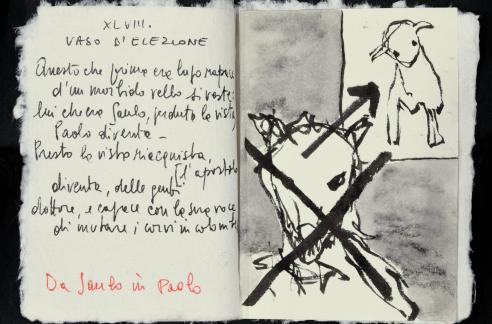 XLVIII.
VASO D'ELEZIONE
Questo che prima era lupo rapace
d'un morbido vello si veste:
lui ch'era Saulo, perduta la vista,
Paolo diventa -
Presto la vista riacquista,
[l'apostolo
diventa, delle genti
dottore, e capace con la sua voce
di mutare i corvi in colombe
Da Saulo in Paolo